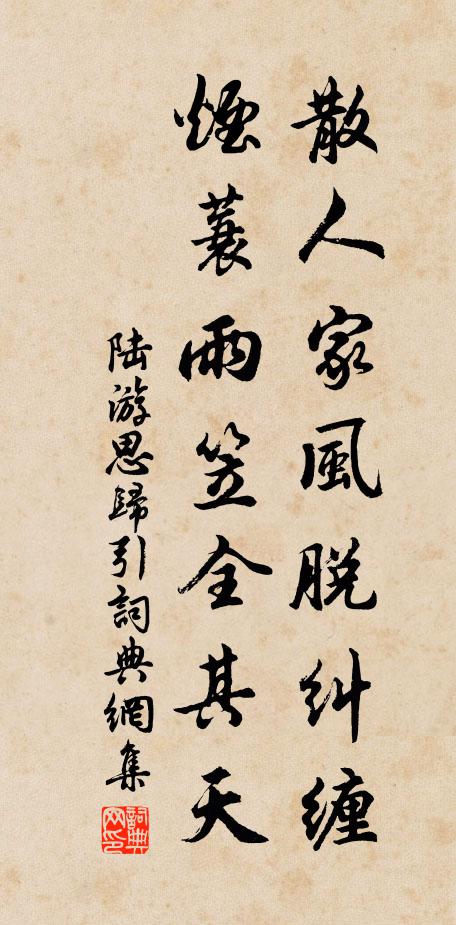 散人家風脱糾纏
煙蓑雨笠全其天
陆游思歸引詞典網集
詞典网印